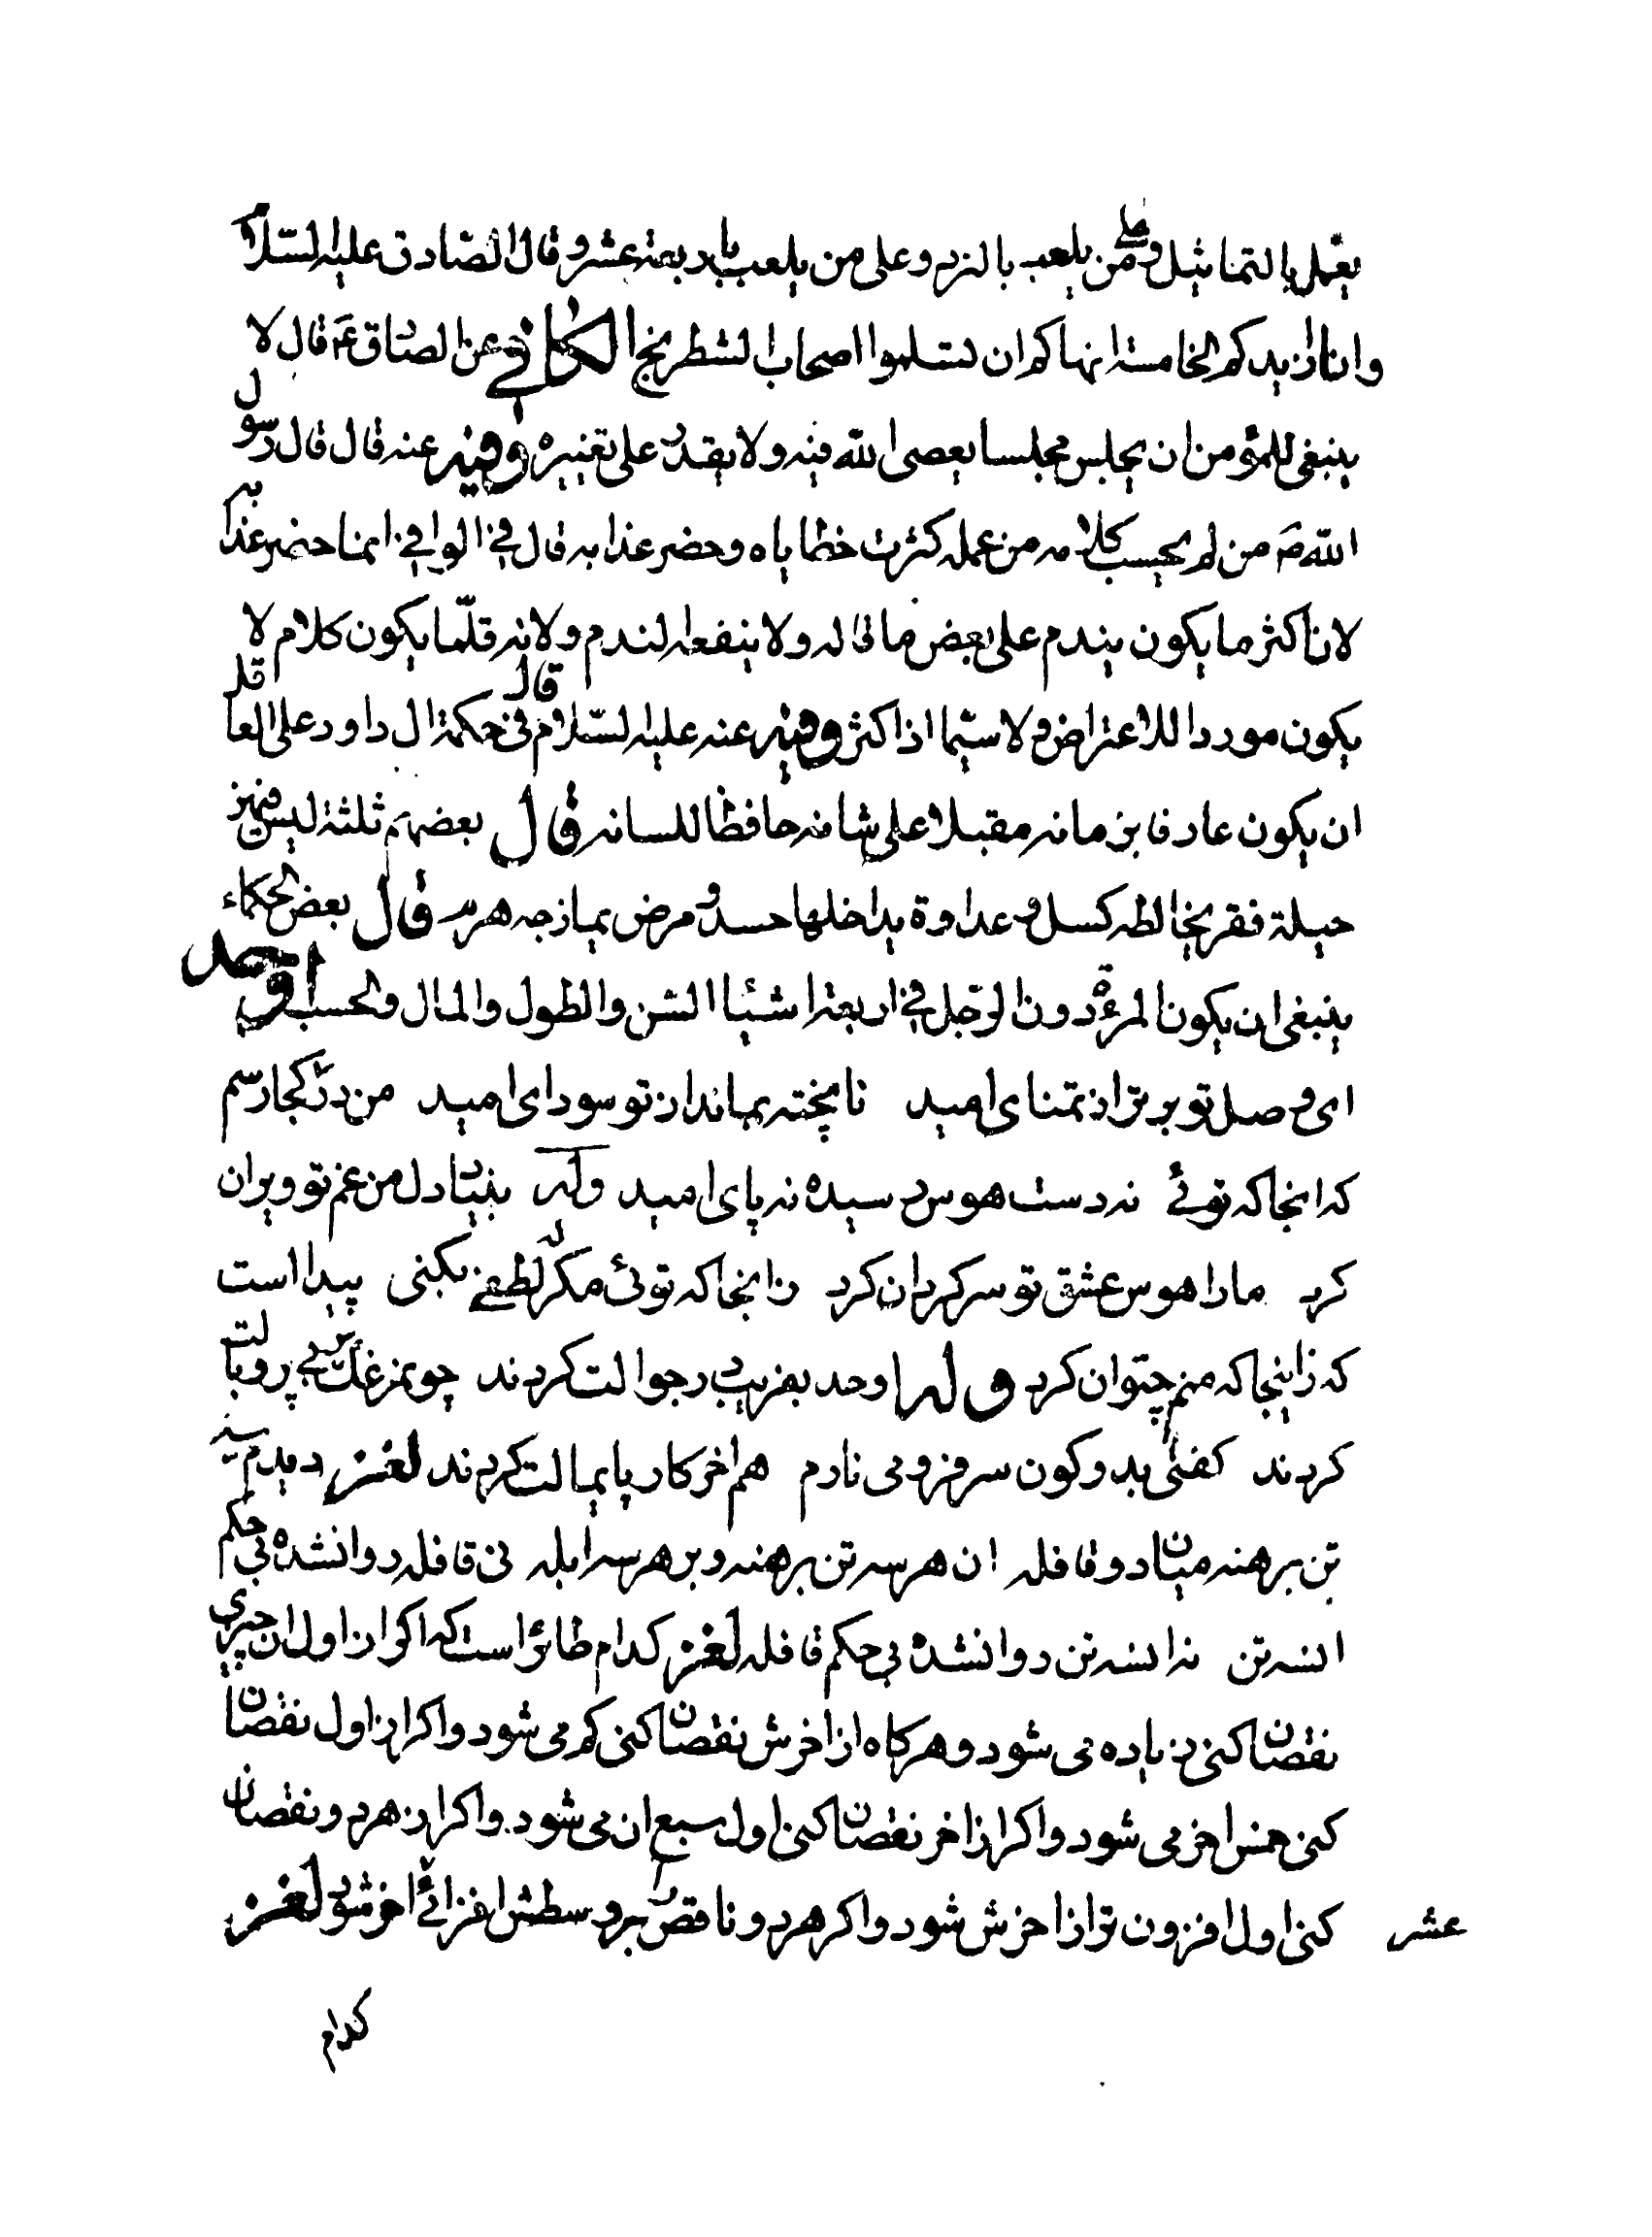 يعمل بالتماثيل وعلى من يلعب بالنرد وعلى من يلعب باربعة عشر وقال الصادق عليه السلام
وانا ازيدكم الخامسة انهاكم ان تسلموا اصحاب الشطرنج الكافي عن الصادق ع قال لا
ينبغي للمؤمن ان يجلس مجلسا يعصى الله فيه ولا يقدر على تغييره وفيه عنه قال قال رسول
الله ص من لم يحسب كلامه من عمله كثرت خطاياه وحضر عذابه قال في الوافي انما حضر عذابه
لان اكثر ما يكون يندم على بعض ما قاله ولا ينفعه الندم ولانه قلّما يكون كلام لا
يكون موردا للاعتراض ولا سيّما اذا كثر وفيه عنه عليه السّلام قال في حكمة ال داود على العاقل
ان يكون عارفا بزمانه مقبلا على شانه حافظا للسانه قال بعضهم ثلثة ليس فيهن
حيلة فقر يخالطه كسل وعداوة يداخلها حسد ومرض يمازجه هرم قال بعض الحكماء
ينبغي ان يكون المرءة دون الرّجل في اربعة اشياء السّن والطول والمال والحسب اوحد
ای وصل تو برتر از تمنای امید ناپخته بماند از تو سودای امید من در تو کجا رسم
که انجا که توئی نه دست هوس رسیده نه پای امید وله بنیاد دل من غم تو ویران
کرد مارا هوس عشق تو سرکردان کرد زانجا که توئی مکر که لطفی بکنی پیدا است
که زاینجا که منم چتوان کرد وله اوحد بفریب در جوالت کردند چو مرغک بی پر وبالت
کردند کفتی بدو کون سر فرو می نارم هم اخر کار پایمالت کردند لغز دیدم سه
تن برهنه میان دو قافله ان هر سه تن برهنه و بر هر سه ابله نی قافله روانشده بی حکم
انسه تن نه انسه تن روانشده بی حکم قافله لغز کدام طائر است که اکر از اول ان چیزی
نقصان کنی زیاده می شود و هرکاه از اخرش نقصان کنی کم می شود و اکر از اول نقصان
کنی خمس اخر می شود و اکر از اخر نقصان کنی اول سبع ان می شود و اکر از هر دو نقصان
کنی اول افزون تر از اخرش شود و اکر هر دو ناقص بر وسطش افزائی اخر شود لغز
عشر
کدام